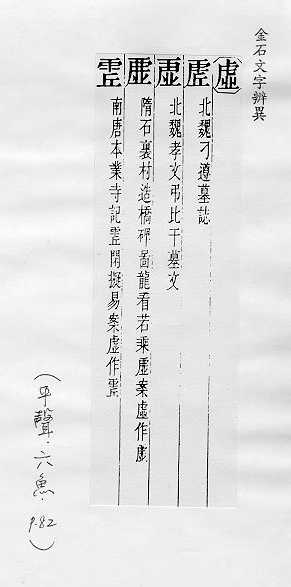 金石文字辨異
虛
虗 北魏刁遵墓誌
北魏孝文弔比干墓文
隋石裏村造橋碑啚龍看若乘虛案虛作
南唐本業寺記 閑擬易案虛作
(平聲.六魚. P.82)